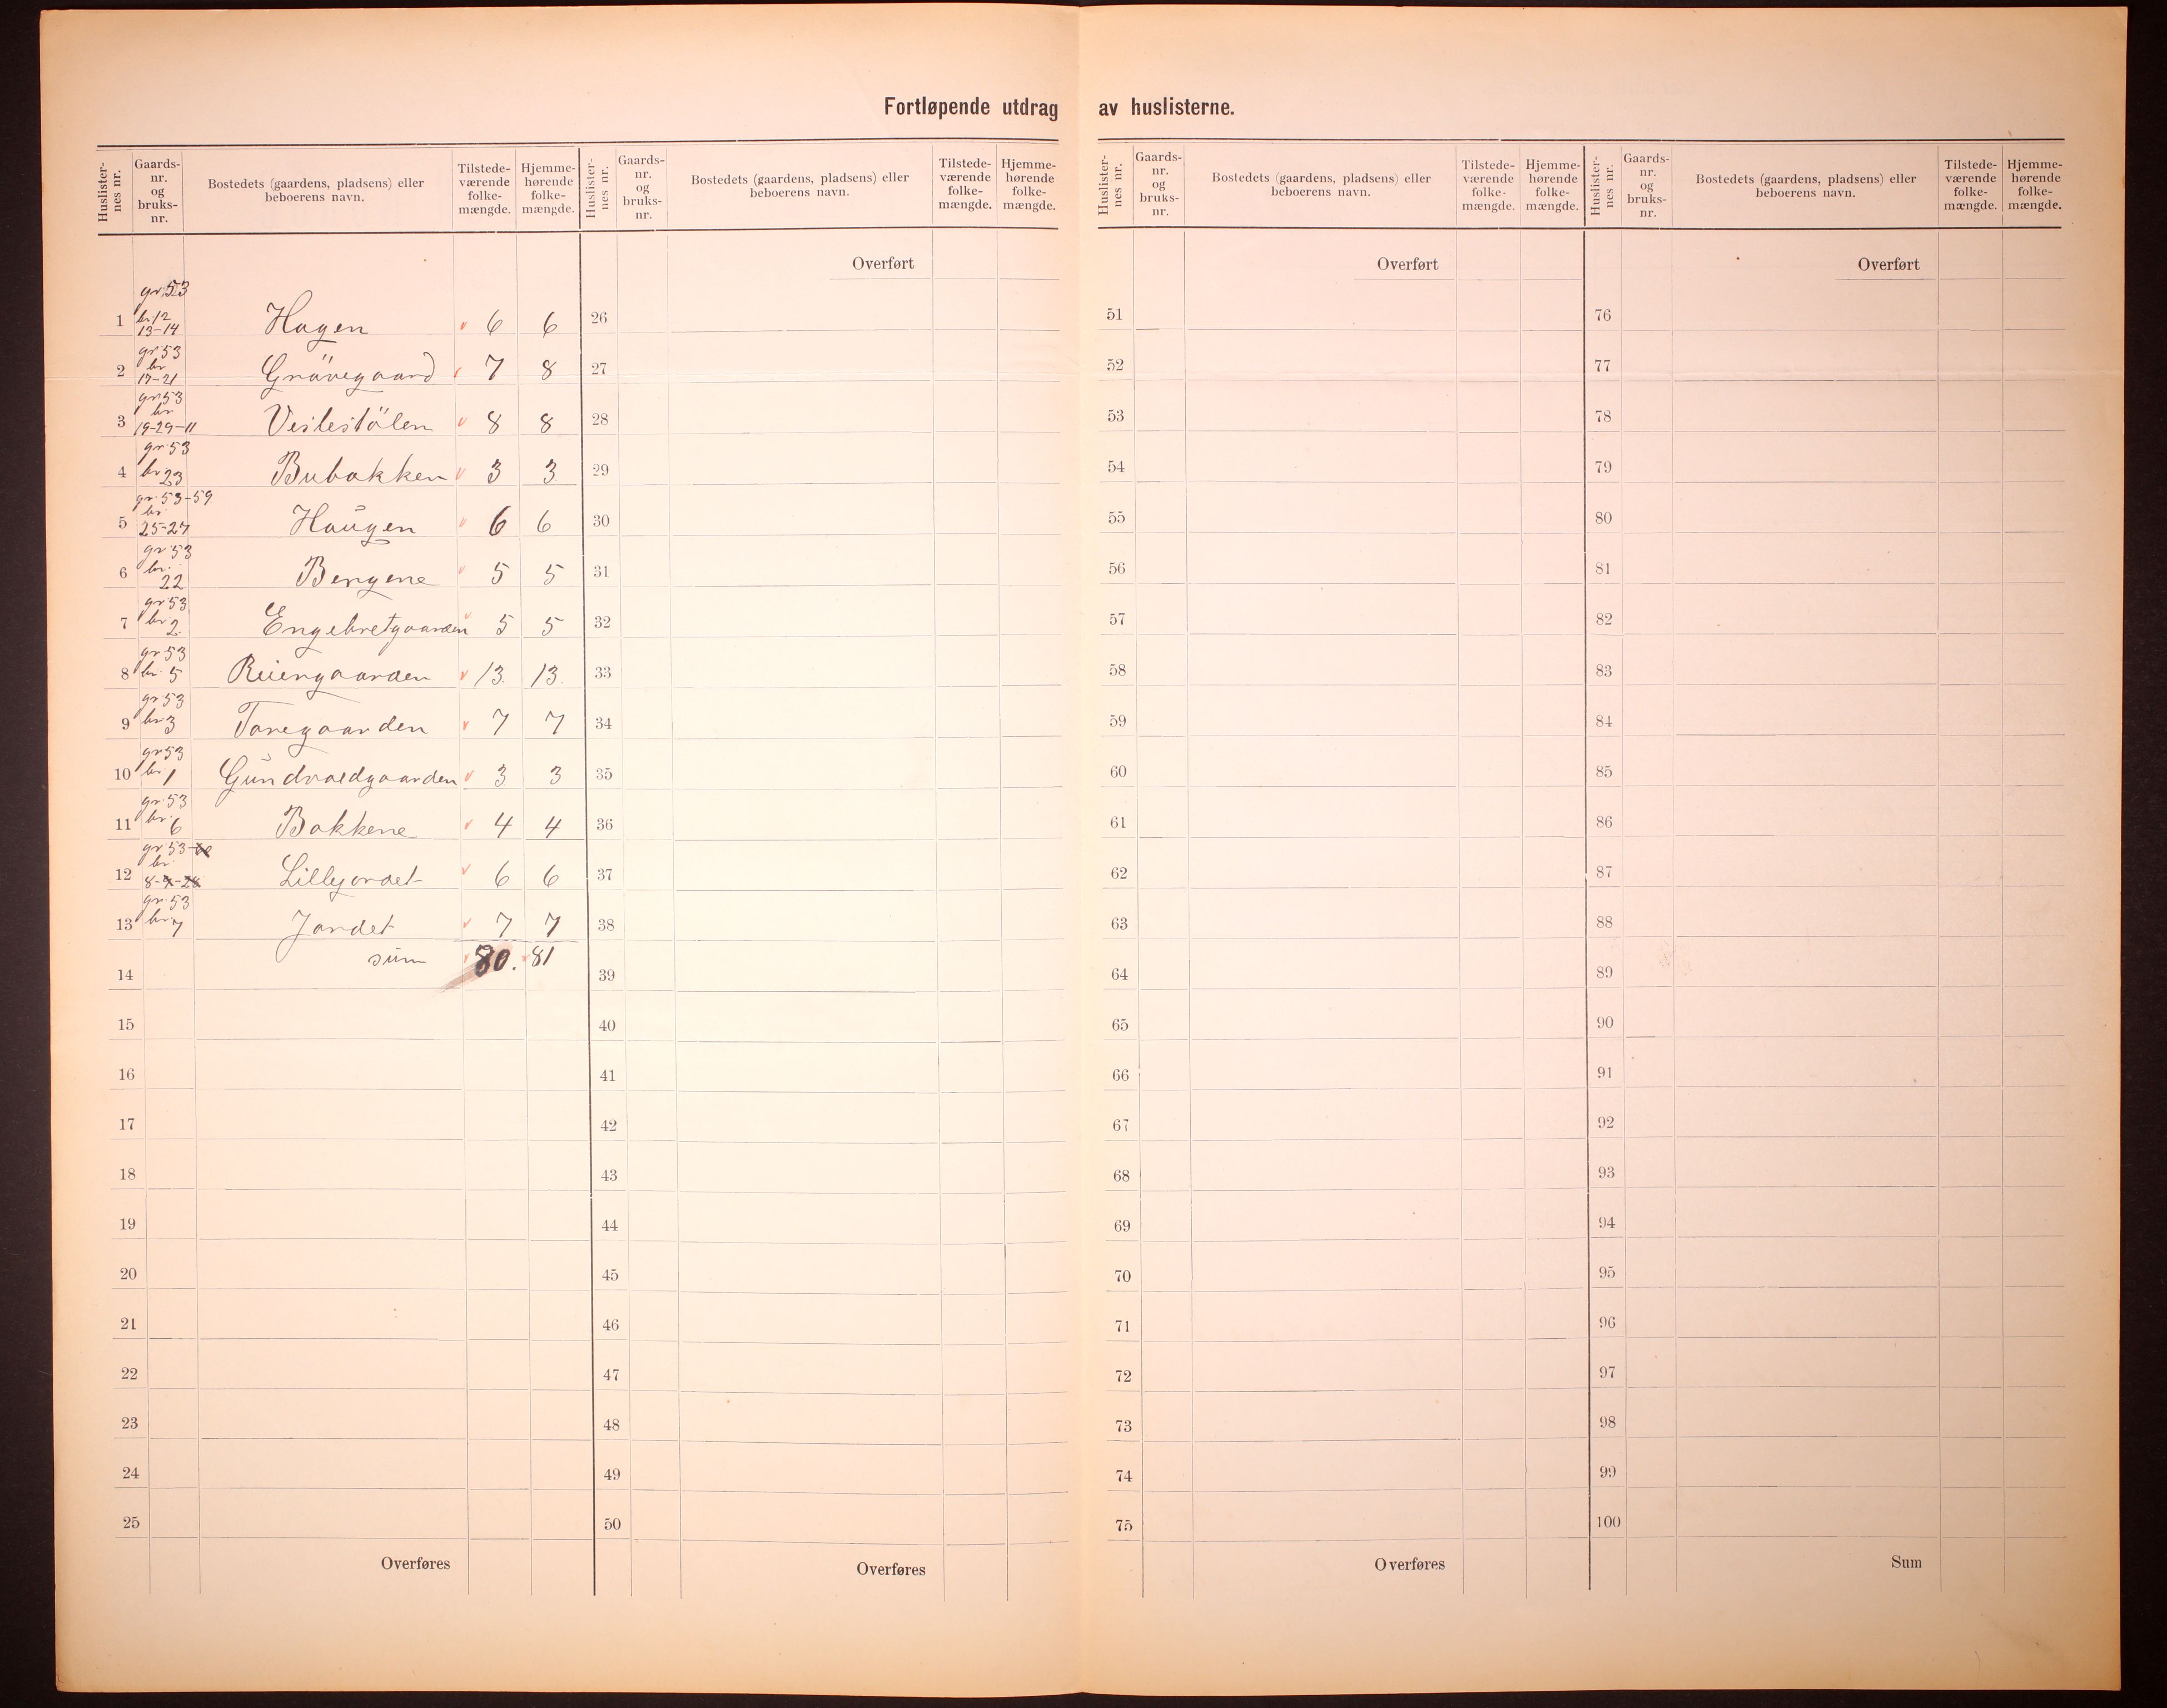 Fortløpende utdrag av huslisterne.
Huslister-nes nr. Gaards-nr. og bruks-nr. Bostedets (gaardens, pladsens) eller beboerens navn. Tilstede-værende folke-mængde. Hjemme-hørende folke-mængde.
Huslister-nes nr. Gaards-nr. og bruks-nr. Bostedets (gaardens, pladsens) eller beboerens navn. Tilstede-værende folke-mængde. Hjemme-hørende folke-mængde.
Huslister-nes nr. Gaards-nr. og bruks-nr. Bostedets (gaardens, pladsens) eller beboerens navn. Tilstede-værende folke-mængde. Hjemme-hørende folke-mængde.
Huslister-nes nr. Gaards-nr. og bruks-nr. Bostedets (gaardens, pladsens) eller beboerens navn. Tilstede-værende folke-mængde. Hjemme-hørende folke-mængde.
Overført Overført Overført
1 gr 53 br 12 13-14 Hagen 6 6 26 51 76
2 gr 53 br 17-21 Grönegaard 7 8 27 52 77
3 gr 53 br 19-29-11 Veslestölen 8 8 28 53 78
4 gr 53 br 23 Bubakken 3 3 29 54 79
5 gr. 53-59 br 25-27 Haugen 6 6 30 55 80
6 gr 53 br. 22 Bergene 5 5 31 56 81
7 gr 53 br 2 Engebretgaarden 5 5 32 57 82
8 gr 53 br. 5 Reiergaarden 13. 13. 33 58 83
9 gr 53 br 3 Toregaarden 7 7 34 59 84
10 gr 53 br 1 Gundvaldgaarden 3 3 35 60 85
11 gr 53 br. 6 Bakkene 4 4 36 61 86
12 gr 53 br. 8 Lillejordet 6 6 37 62 87
13 gr. 53 br. 7 Jordet 7 7 38 63 88
14 sum 80. 81 39 64 89
15 40 65 90
16 41 66 91
17 42 67 92
18 43 68 93
19 44 69 94
20 45 70 95
21 46 71 96
22 47 72 97
23 48 73 98
24 49 74 99
25 50 75 100
Overføres Overføres Overføres Sum